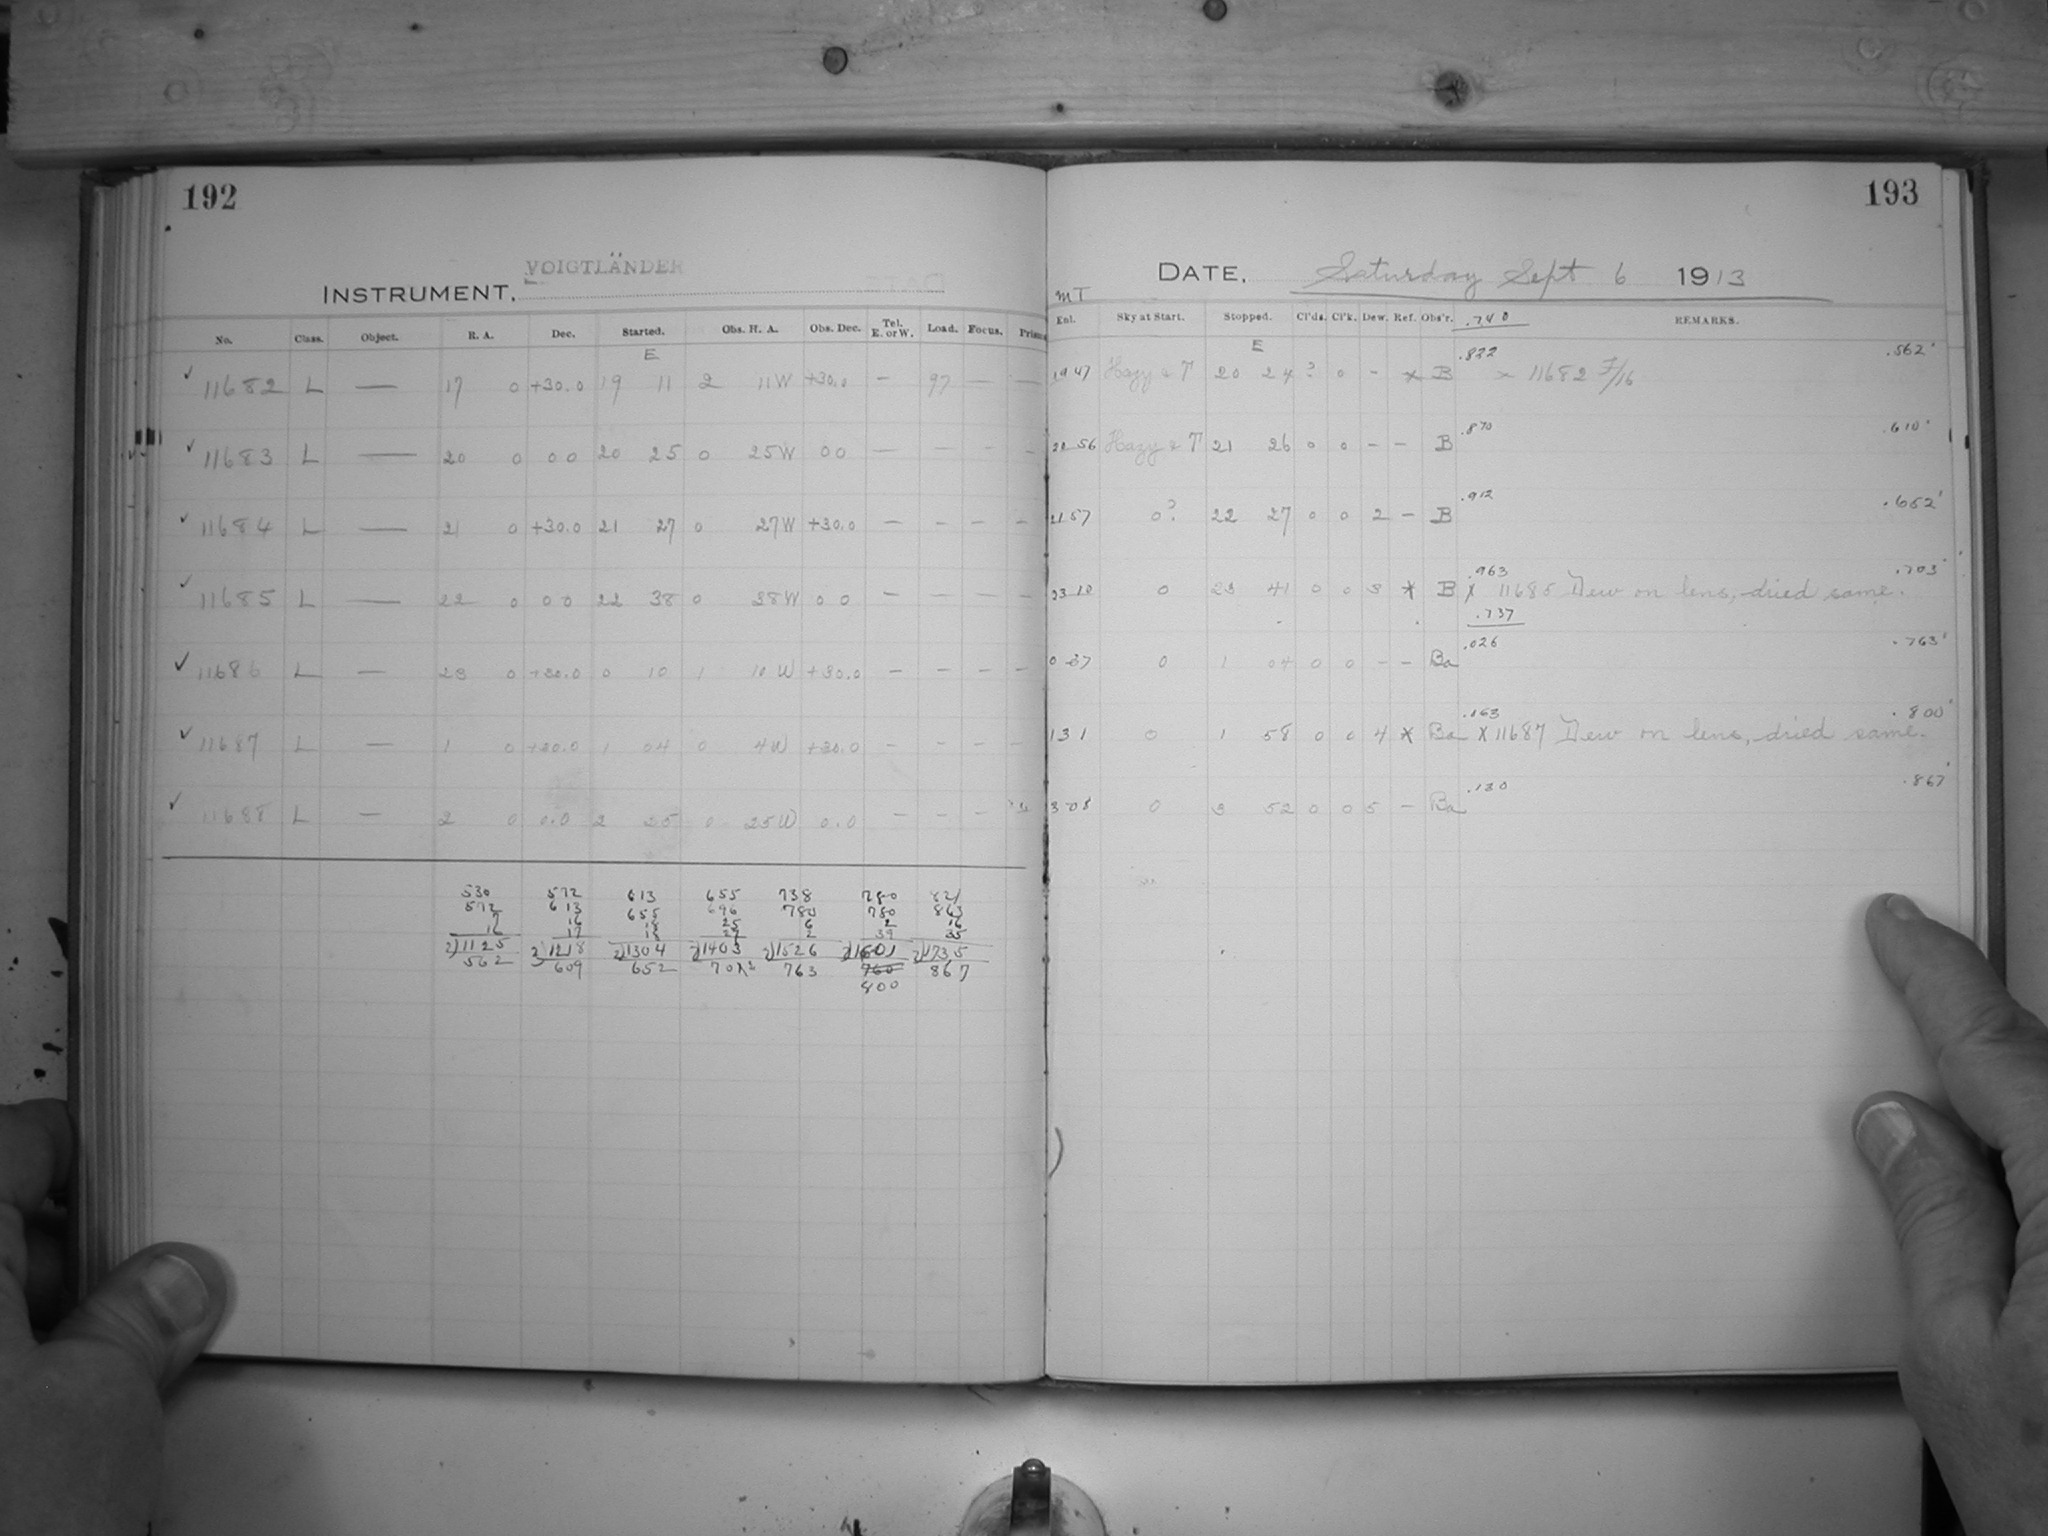 192
VOIGTLÄNDER
INSTRUMENT,
No. Class. Object. R. A. Dec. Started. Obs. H. A. Obs. Dec. Tel. E. or W. Load. Focus.
E
✓ 11682 L — 17 0 +30.0 19 11 2 11W +30.0 — 97 — —
✓ 11683 L — 20 0 00 20 25 0 25W 00 — — — —
✓ 11684 L — 21 0 +30.0 21 27 0 27W +30.0 — — — —
✓ 11685 L — 22 0 00 22 38 0 38W 00 — — — —
✓ 11686 L — 23 0 +30.0 0 10 1 10W +30.0 — — — —
✓ 11687 L — 1 0 +30.0 1 04 0 4W +30.0 — — — —
✓ 11688 L — 2 0 0.0 2 25 0 25W 0.0 — — —
530 572 613 655 738 780 821
572 613 655 696 780 780 863
9 16 18 25 6 2 16
16 17 18 27 2 39 35
2)1125 2)1218 2)1304 2)1403 2)1526 2)1601 2)1735
562 609 652 763 760 867
800
193
DATE, Saturday Sept 6 1913
MT
Enl. Sky at Start. Stopped. Cl'ds. Cl'k. Dew. Ref. Obs'r. .740 REMARKS.
E .822 .562'
19 47 Hazy & T 20 24 ? 0 - × B × 11682 F/16
.870 .610'
20 56 Hazy & T 21 26 0 0 - - B
.912 .652'
21 57 0? 22 27 0 0 2 - B
.963 .703'
23 10 0 23 41 0 0 3 × B × 11685 Dew on lens, dried same.
.737
.026 .763'
0 37 0 1 04 0 0 - - Ba
.163 .800'
1 31 0 1 58 0 0 4 × Ba × 11687 Dew on lens, dried same.
.130 .867'
3 08 0 3 52 0 0 5 - Ba